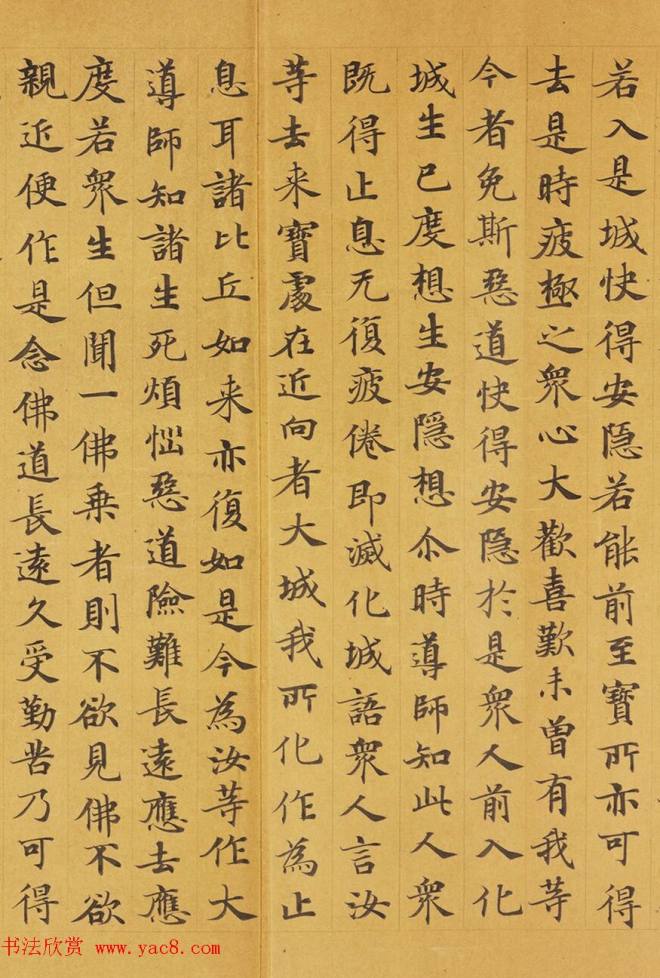 若入是城快得安隱若能前至寶所亦可得
去是時疲極之衆心大歡喜歎未曾有我等
今者免斯惡道快得安隱於是衆人前入化
城生已度想生安隱想尒時導師知此人衆
既得止息无復疲倦即滅化城語衆人言汝
等去来寶處在近向者大城我所化作為止
息耳諸比丘如来亦復如是今為汝等作大
導師知諸生死煩惱惡道險難長遠應去應
度若衆生但聞一佛乗者則不欲見佛不欲
親近便作是念佛道長遠久受勤苦乃可得
书法欣赏 www.yac8.com